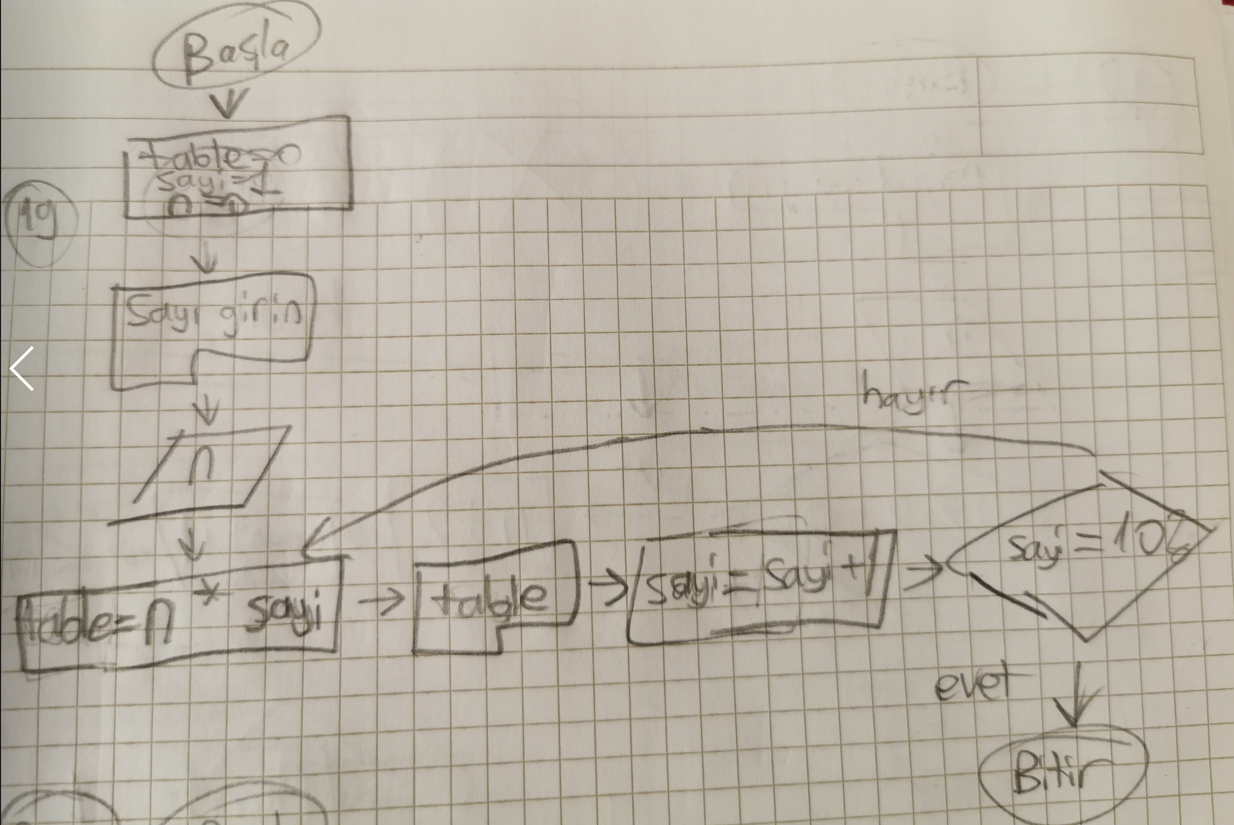 Başla
table=0
sayi=1
n=0
19
Sayı girin
n
hayır
table=n * sayi
table
sayi=sayi+1
sayi=10
evet
Bitir